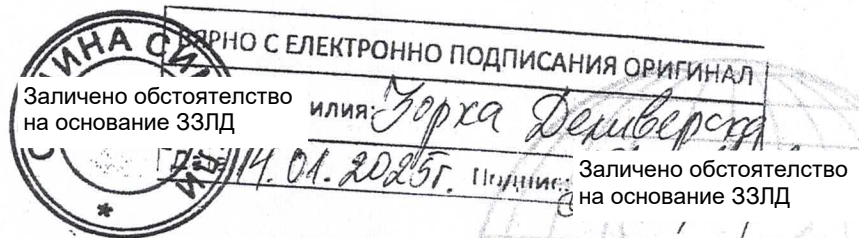 ВЯРНО С ЕЛЕКТРОННО ПОДПИСАНИЯ ОРИГИНАЛ
Заличено обстоятелство
на основание ЗЗЛД
илия: Зорка Деливерска
14.01.2025г. Подпис:
Заличено обстоятелство
на основание ЗЗЛД